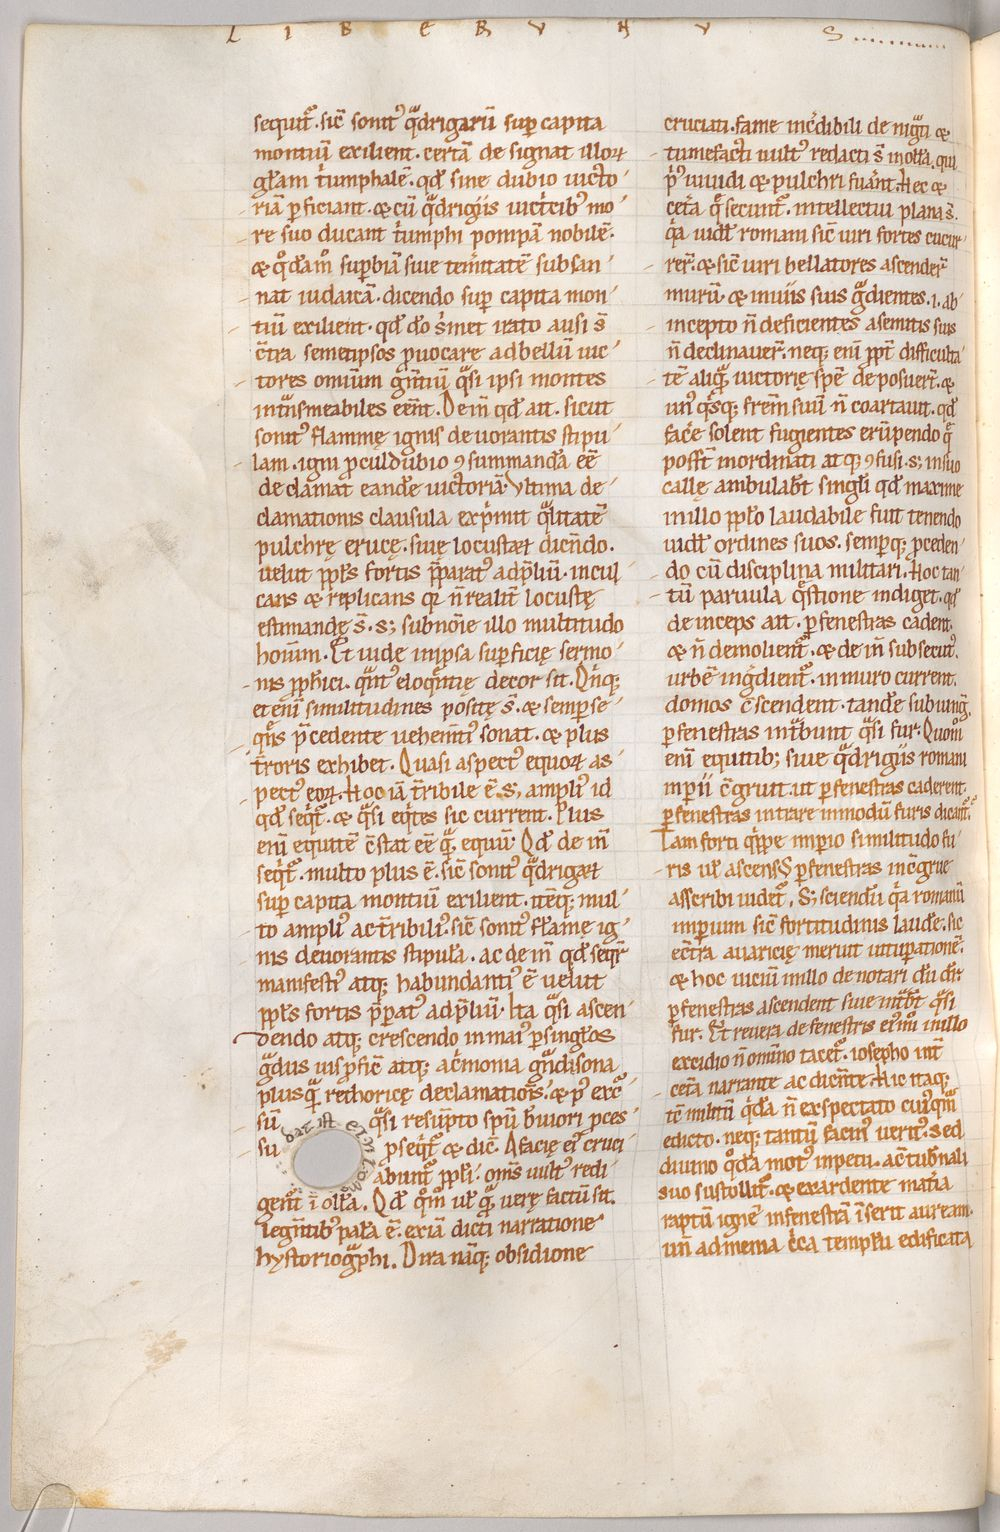 L I B E R V N V S
sequit᷑. sic̄ sonit᷒ qᷓdrigarū sup capita
montiū exilient. certā de signat illoꝝ
gl̄am tⁱumphalē. qd̄ sine dubio victo
riā ꝑficiant. & cū qᷓdrigiis victⁱcib᷒ mo
re suo ducant tⁱumphi pompā nobilē.
& qͦdāmͦ suꝑbiā sive tem̄itatē subsan
nat iudaicā. dicendo suꝑ capita mon
tiū exilient. qd̄
ausi s̄
c̄tra semetipsos ꝓvocare ad bellū vic
tores omium gn̄tiū qᷓsi ipsi montes
intᷓnsmeabiles eēnt. Dein̄ qd̄ ait. sicut
sonit᷒ flammę ignis devorantis stipu
lam. igni ꝓculdubio ꝯsummandā eē
declamat eandē victoriā. Vltima de
clamationis clausula exp̄mit qᷓlitatē
pulchrę erucę. sivę locustaꝝ dicēdo.
velut ppl̄s fortis p̄parat᷒ ad p̄liū. incul
cans & replicans qꝛ n̄ realit̄ locustę
estimandę s̄. s; sub noīe illo multitudo
hoīum. Et vide in ipsa suꝑficię sermo
nis ꝓph̄ici. qᷓnt᷒ eloq̄ntię decor sit. Qⁱnq;
etenī similitudines positę s̄. & semꝑ se
qn̄s p̄cedente vehemēti᷒ sonat. & plus
t̄roris exhibet. Quasi aspect᷒ equoꝝ as
pect᷒ eoꝝ. Hoc iā t̄ribile ē. s; ampli᷒ id
qd̄ seqⁱt᷑. & qᷓsi eqⁱtes sic current. Plus
enī equitē c̄stat eē qᷓ equū. Qd̄ dein̄
seqⁱt᷑. multo plus ē. sic̄ sonit᷒ qᷓdrigaꝝ
suꝑ capita montiū exilient. itēq; mul
to ampli᷒ ac t̄ribili᷒. sic̄ sonit᷒ flāmę ig
nis devorantis stipulā. ac dein̄ qd̄ seqⁱt᷑
manifesti᷒ atq; habundanti᷒ ē velut
ppl̄s fortis p̄parat᷒ ad p̄liū. Ita qᷓsi ascen
dendo atq; crescendo in mai᷒ ꝑ singl̄os
gᷓdus
atq; ac̄monia gᷓndisona
plusqᷓ rethoricę declamatioīs. & p᷒ exc̄
sū qᷓsi resūpto spū
su ꝑseqⁱt᷑ & dic̄. A facię ei᷒ cruci
abunt᷑ ppl̄i. om̄s vult᷒ redi
gent᷑ ī ollā. Qd̄ qͦmͦ vl̄ qᷓ verę factū sit.
legn̄tib᷒ palā ē. ex iā dicti narratione
hystoriogᷓphi. Dira nāq; obsidione
cruciati. fame inc̄dibili de nigᷓti &
tumefacti vult᷒ redacti s̄ in ollā. qui
p̄᷒ nitidi & pulchri fuānt. Hec &
cetā qᷓ secunt᷑. intellectui plana s̄.
qⁱa vidl̄ romani sic̄ viri fortes cucur
rer̄. & sic̄ viri bellatores ascender̄
murū. & in viis suis gᷓdientes .i. ab
incepto n̄ deficientes a semitis suis
n̄ declinaver̄. neq; enī ꝓpt̄ difficulta
tē aliqᷓ victorię spē deposuer̄. &
un᷒ qⁱsq; fr̄em suū n̄ coartavit. qd̄
facē solent fugientes erūpendo qᷓ
possn̄t inordinati atq; ꝯfusi. s; in suo
callę ambulabt̄ singl̄i qd̄ maxime
in illo ppl̄o laudabile fuit tenendo
vidl̄ ordines suos. semꝑq; ꝓceden
do cū disciplina militari. Hoc tan
tū parvula qᷓstione indiget. qd̄
deinceps ait. ꝑ fenestras cadent.
& n̄ demolient᷑. & dein̄ subsecut᷒.
urbē ingᷓdient᷑. in muro current.
domos c̄scendent. tandē subiung᷑.
ꝑ fenestras intᷓbunt qᷓsi fur. Quomͦ
enī equitib; sive qᷓdrigiis romani
imꝑii c̄gruit. ut ꝑ fenestras caderent.
ꝑ fenestras intrare in modū furis dicant᷑.
Tam forti qⁱppe imꝑio similitudo fu
ris vl̄ ascens᷒ ꝑ fenestras inc̄grue
asscribi videt᷑. S; sciendū qⁱa romanū
imꝑium sic̄ fortitudinis laudē. sic
ec̄tra avaricię meruit vituꝑationē.
& hoc viciū in illo denotari
ꝑ fenestras ascendent sive intᷓbt̄ qᷓsi
fur. Et revera de fenestris ei᷒mͦ in illo
excidio n̄ omīno tacet᷑. iosepho int̄
cetā narrante ac dicn̄te. Hic itaq;
tē militū qⁱdā n̄ exspectato cui᷒qᷓm
edicto. neq; tantū facin᷒ verit᷒. sed
divino qͦdā mot᷒ inpetu. a c̄tub̄nali
suo sustollit᷑. & exardente matⁱa
raptū ignē in fenestrā īserit auream.
un̄ ad menia cⁱca templū edificata